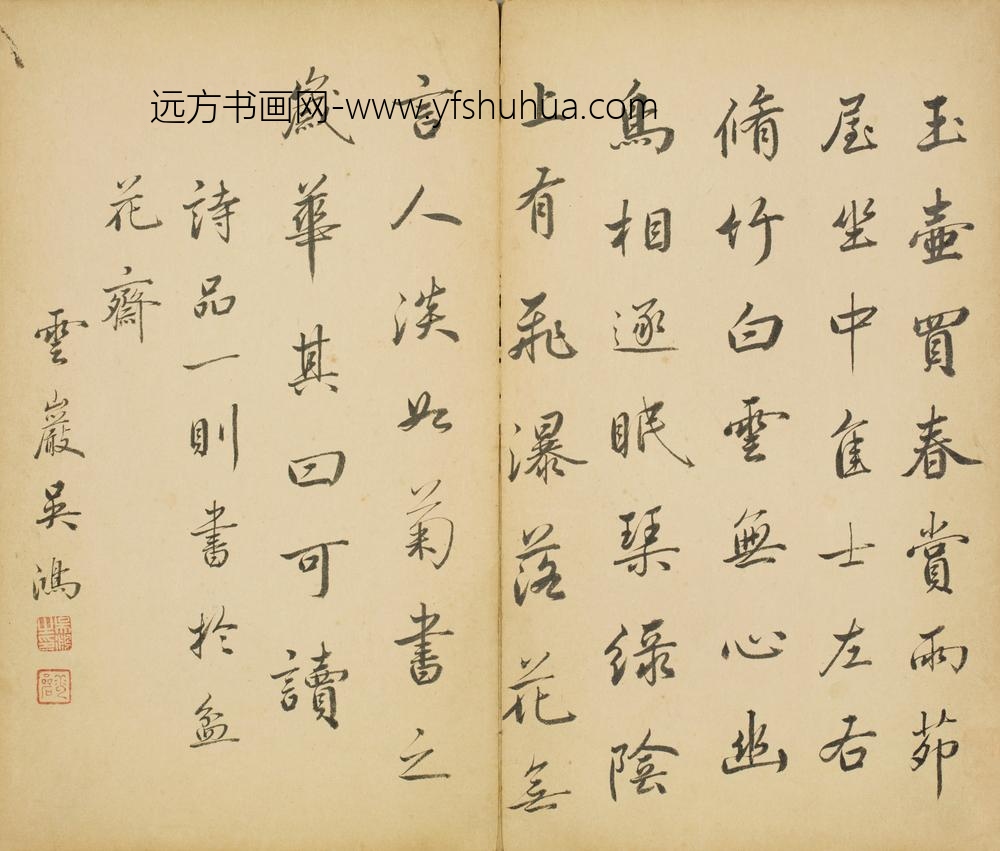 远方书画网-www.yfshuhua.com
玉壺買春賞雨茆
屋坐中佳士左右
脩竹白雲無心幽
鳥相逐眠琴綠陰
上有飛瀑落花無
言人淡如菊書之
歲華其曰可讀
詩品一則書於盆
花齋
雲巖吳鴻